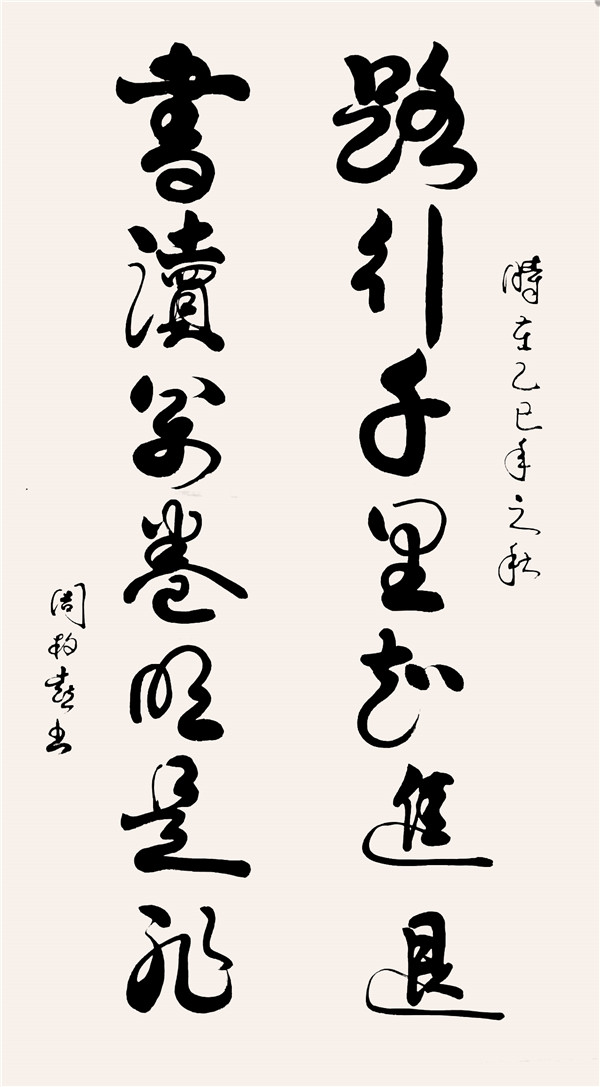 時在乙巳年之秋
路行千里知進退
書讀萬卷明是非
周牧嘉书